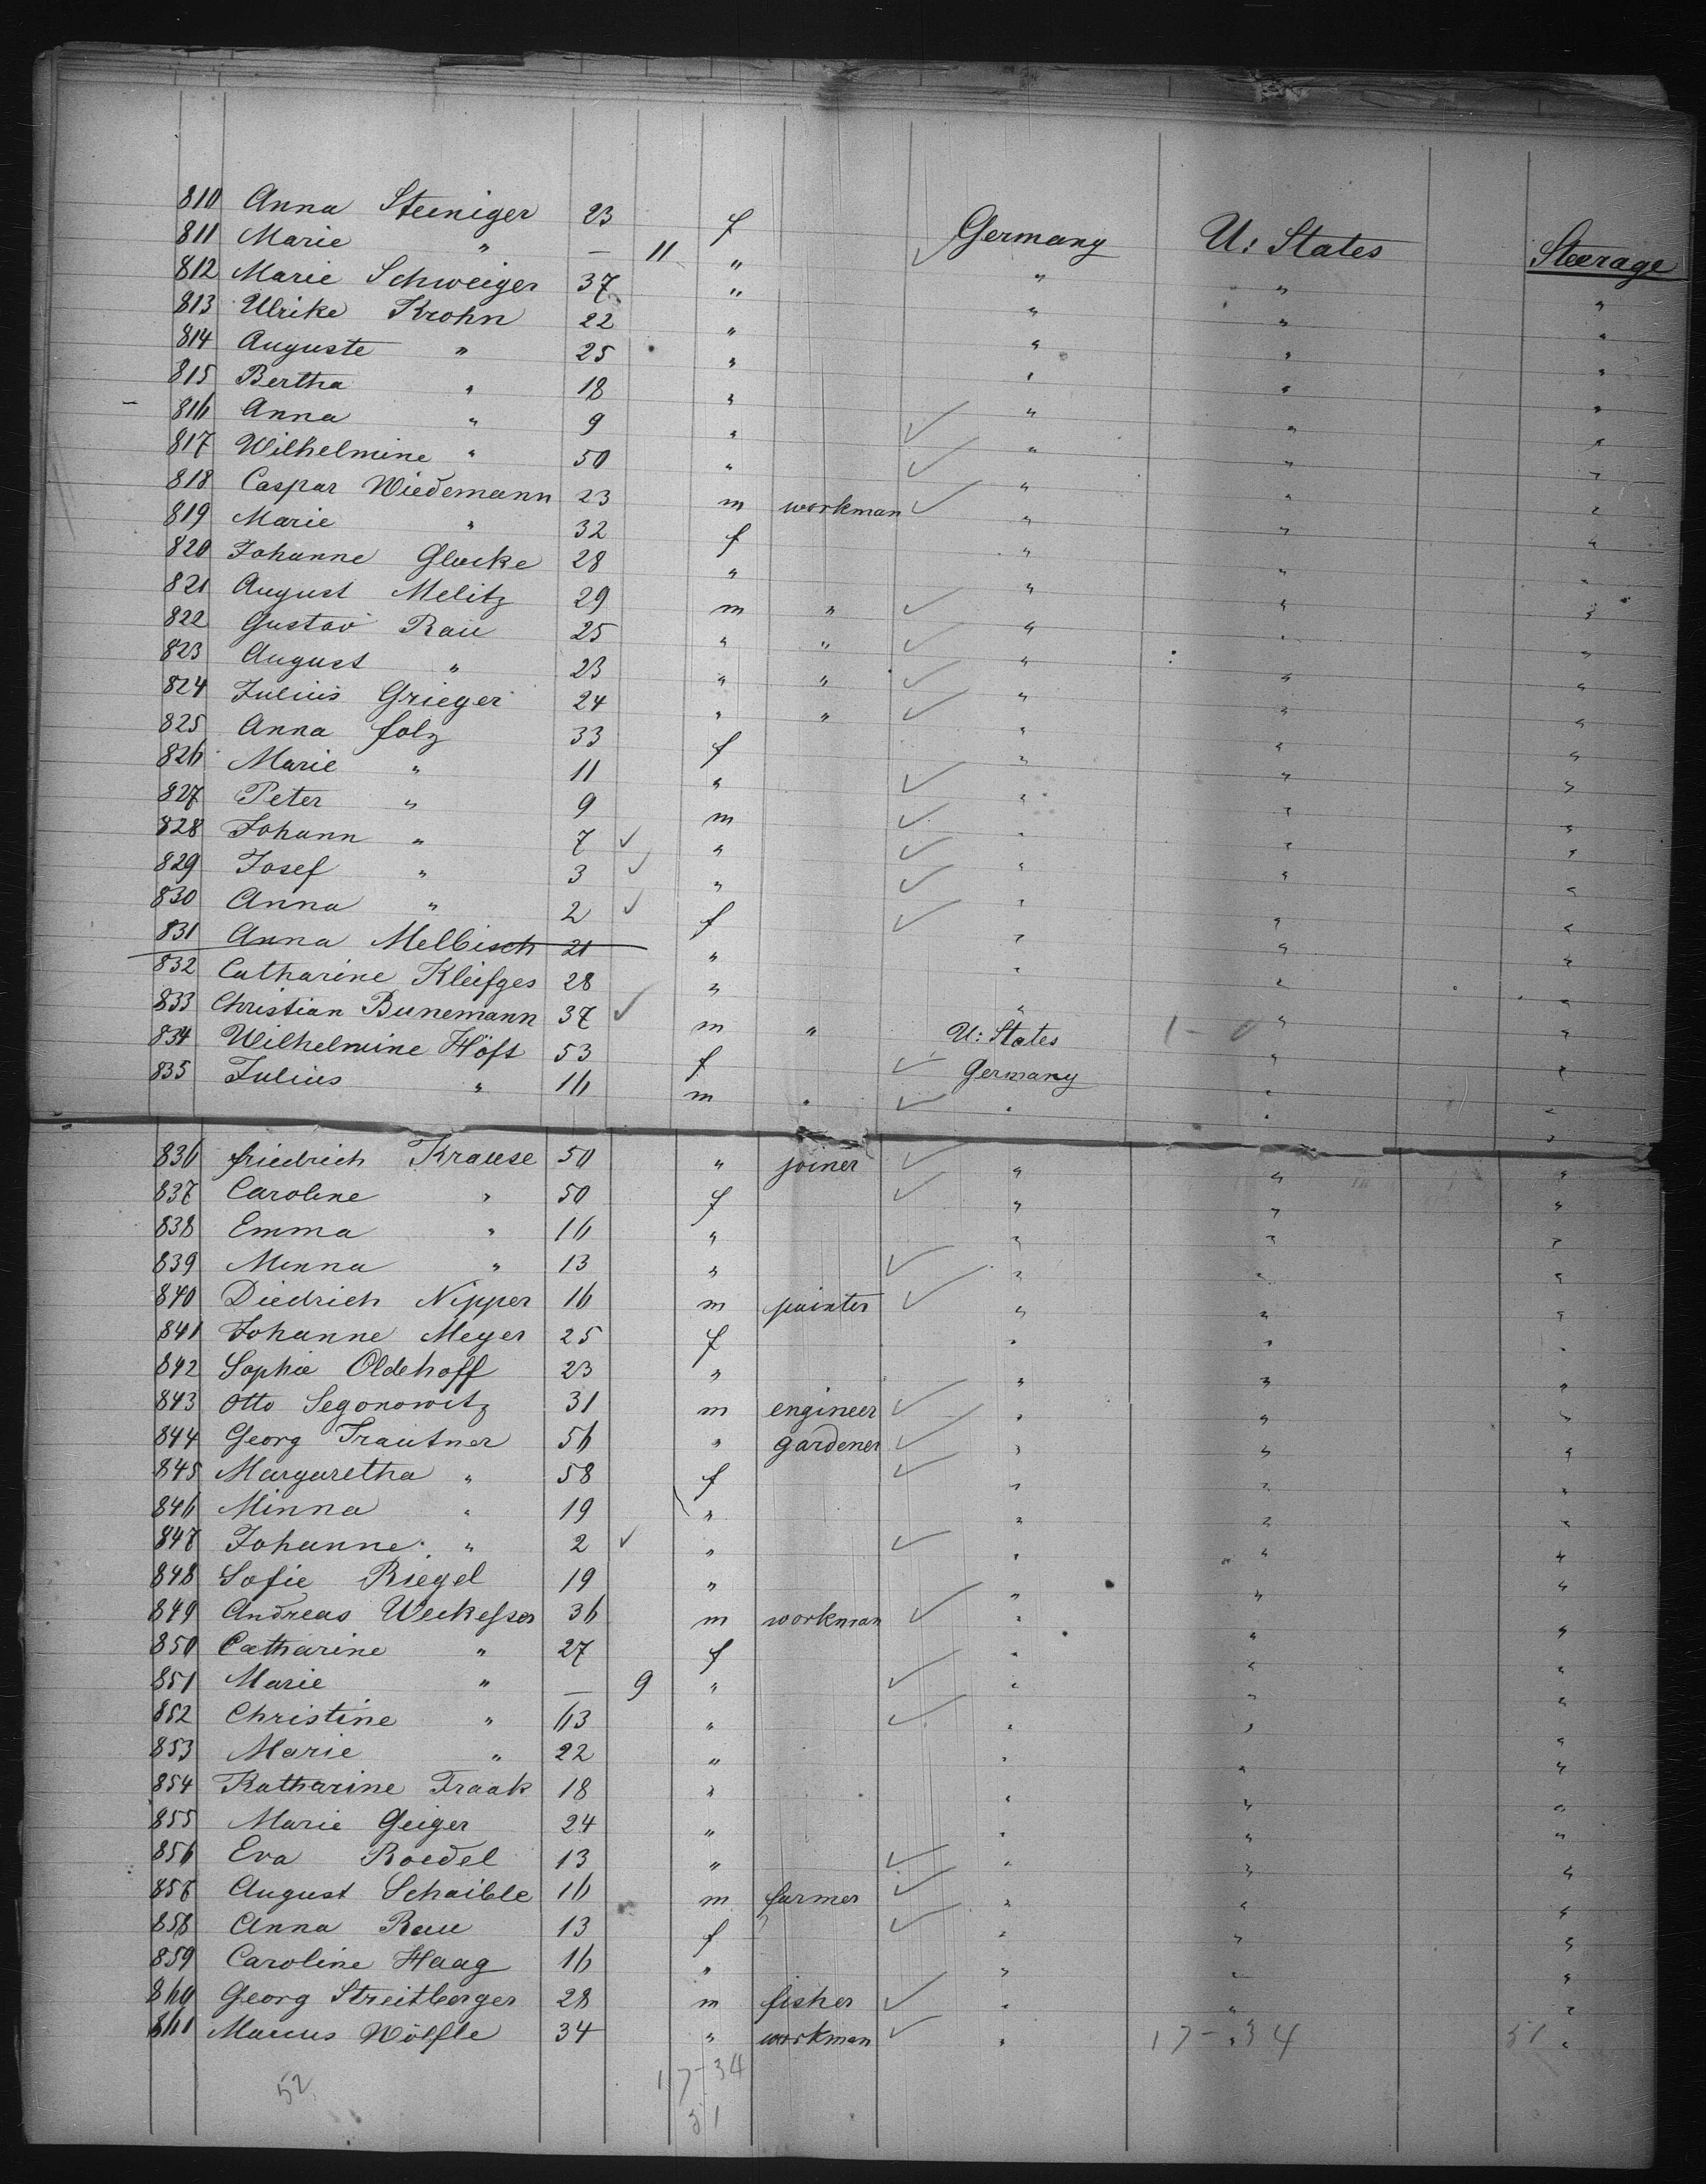 810 Anna Steiniger 23 f Germany U: States Steerage
811 Marie " — 11 " " " "
812 Marie Schweiger 37 " " " "
813 Ulrike Krohn 22 " " " "
814 Auguste " 25 " " " "
815 Bertha " 18 " " " "
816 Anna " 9 " " " "
817 Wilhelmine " 50 " " " "
818 Caspar Wiedemann 23 m workman " " "
819 Marie " 32 f " " "
820 Johanne Glocke 28 " " " "
821 August Melitz 29 m " " " "
822 Gustav Rau 25 " " " " "
823 August " 23 " " " " "
824 Julius Grieger 24 " " " " "
825 Anna folz 33 f " " "
826 Marie " 11 " " " "
827 Peter " 9 m " " "
828 Johann " 7 " " " "
829 Josef " 3 " " " "
830 Anna " 2 f " " "
831 Anna Melbisch 21 " " " "
832 Catharine Kleifges 28 " " " "
833 Christian Bunemann 37 m " U: States 1 - 0 " "
834 Wilhelmine Höft 53 f Germany " "
835 Julius " 16 m " " " "
836 friedrich Krause 50 " joiner " " "
837 Caroline " 50 f " " "
838 Emma " 16 " " " "
839 Minna " 13 " " " "
840 Diedrich Nipper 16 m painter " " "
841 Johanne Meyer 25 f " " "
842 Sophie Oldehoff 23 " " " "
843 Otto Segonowitz 31 m engineer " " "
844 Georg Trautner 56 " gardener " " "
845 Margaretha " 58 f " " "
846 Minna " 19 " " " "
847 Johanne " 2 " " " "
848 Sofie Riegel 19 " " " "
849 Andreas Weckesser 36 m workman " " "
850 Catharine " 27 f " " "
851 Marie " — 9 " " " "
852 Christine " 63 " " " "
853 Marie " 22 " " " "
854 Katharine Traak 18 " " " "
855 Marie Geiger 24 " " " "
856 Eva Roedel 13 " " " "
857 August Schaible 16 m farmer " " "
858 Anna Rau 13 f " " "
859 Caroline Haag 16 " " " "
860 Georg Streitberger 28 m fisher " " "
861 Marcus Wölfle 34 " workman " 17 - 34 " 51 "
52 17-34
51